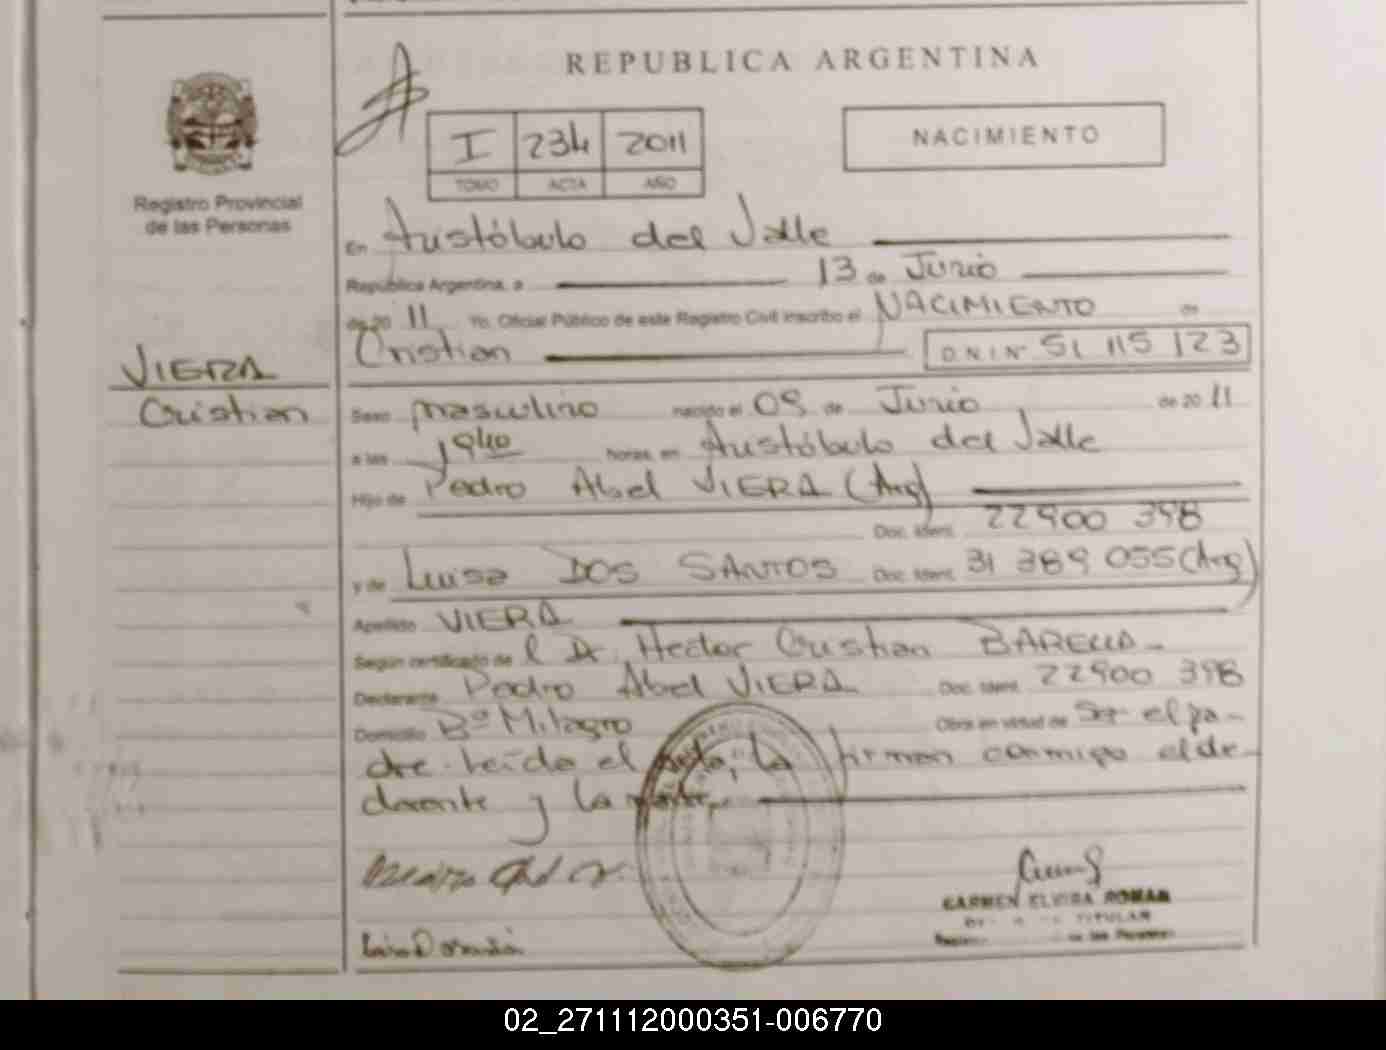 REPUBLICA ARGENTINA
I 234 2011
TOMO ACTA AÑO
NACIMIENTO
Registro Provincial
de las Personas
En Aristóbulo del Valle
República Argentina, a 13 de Junio
de 20 11 Yo, Oficial Público de este Registro Civil inscribo el NACIMIENTO de
Cristian D.N.I.Nº 51 115 123
VIERA
Cristian
Sexo masculino nacido el 09 de Junio de 20 11
a las 1940 horas, en Aristóbulo del Valle
Hijo de Pedro Abel VIERA (Arg)
Doc. Ident. 22900 398
y de Luisa DOS SANTOS Doc. Ident. 31 389 055 (Arg)
Apellido VIERA
Según certificado de l Dr. Hector Cristian BARELLA
Declarante Pedro Abel VIERA Doc. Ident. 22900 398
Domicilio Bº Milagro Obra en virtud de Ser el pa-
dre. Leída el acta, la firman conmigo el de-
clarante y la madre.
CARMEN ELVIRA ROMAN
TITULAR
de las Personas
02_271112000351-006770